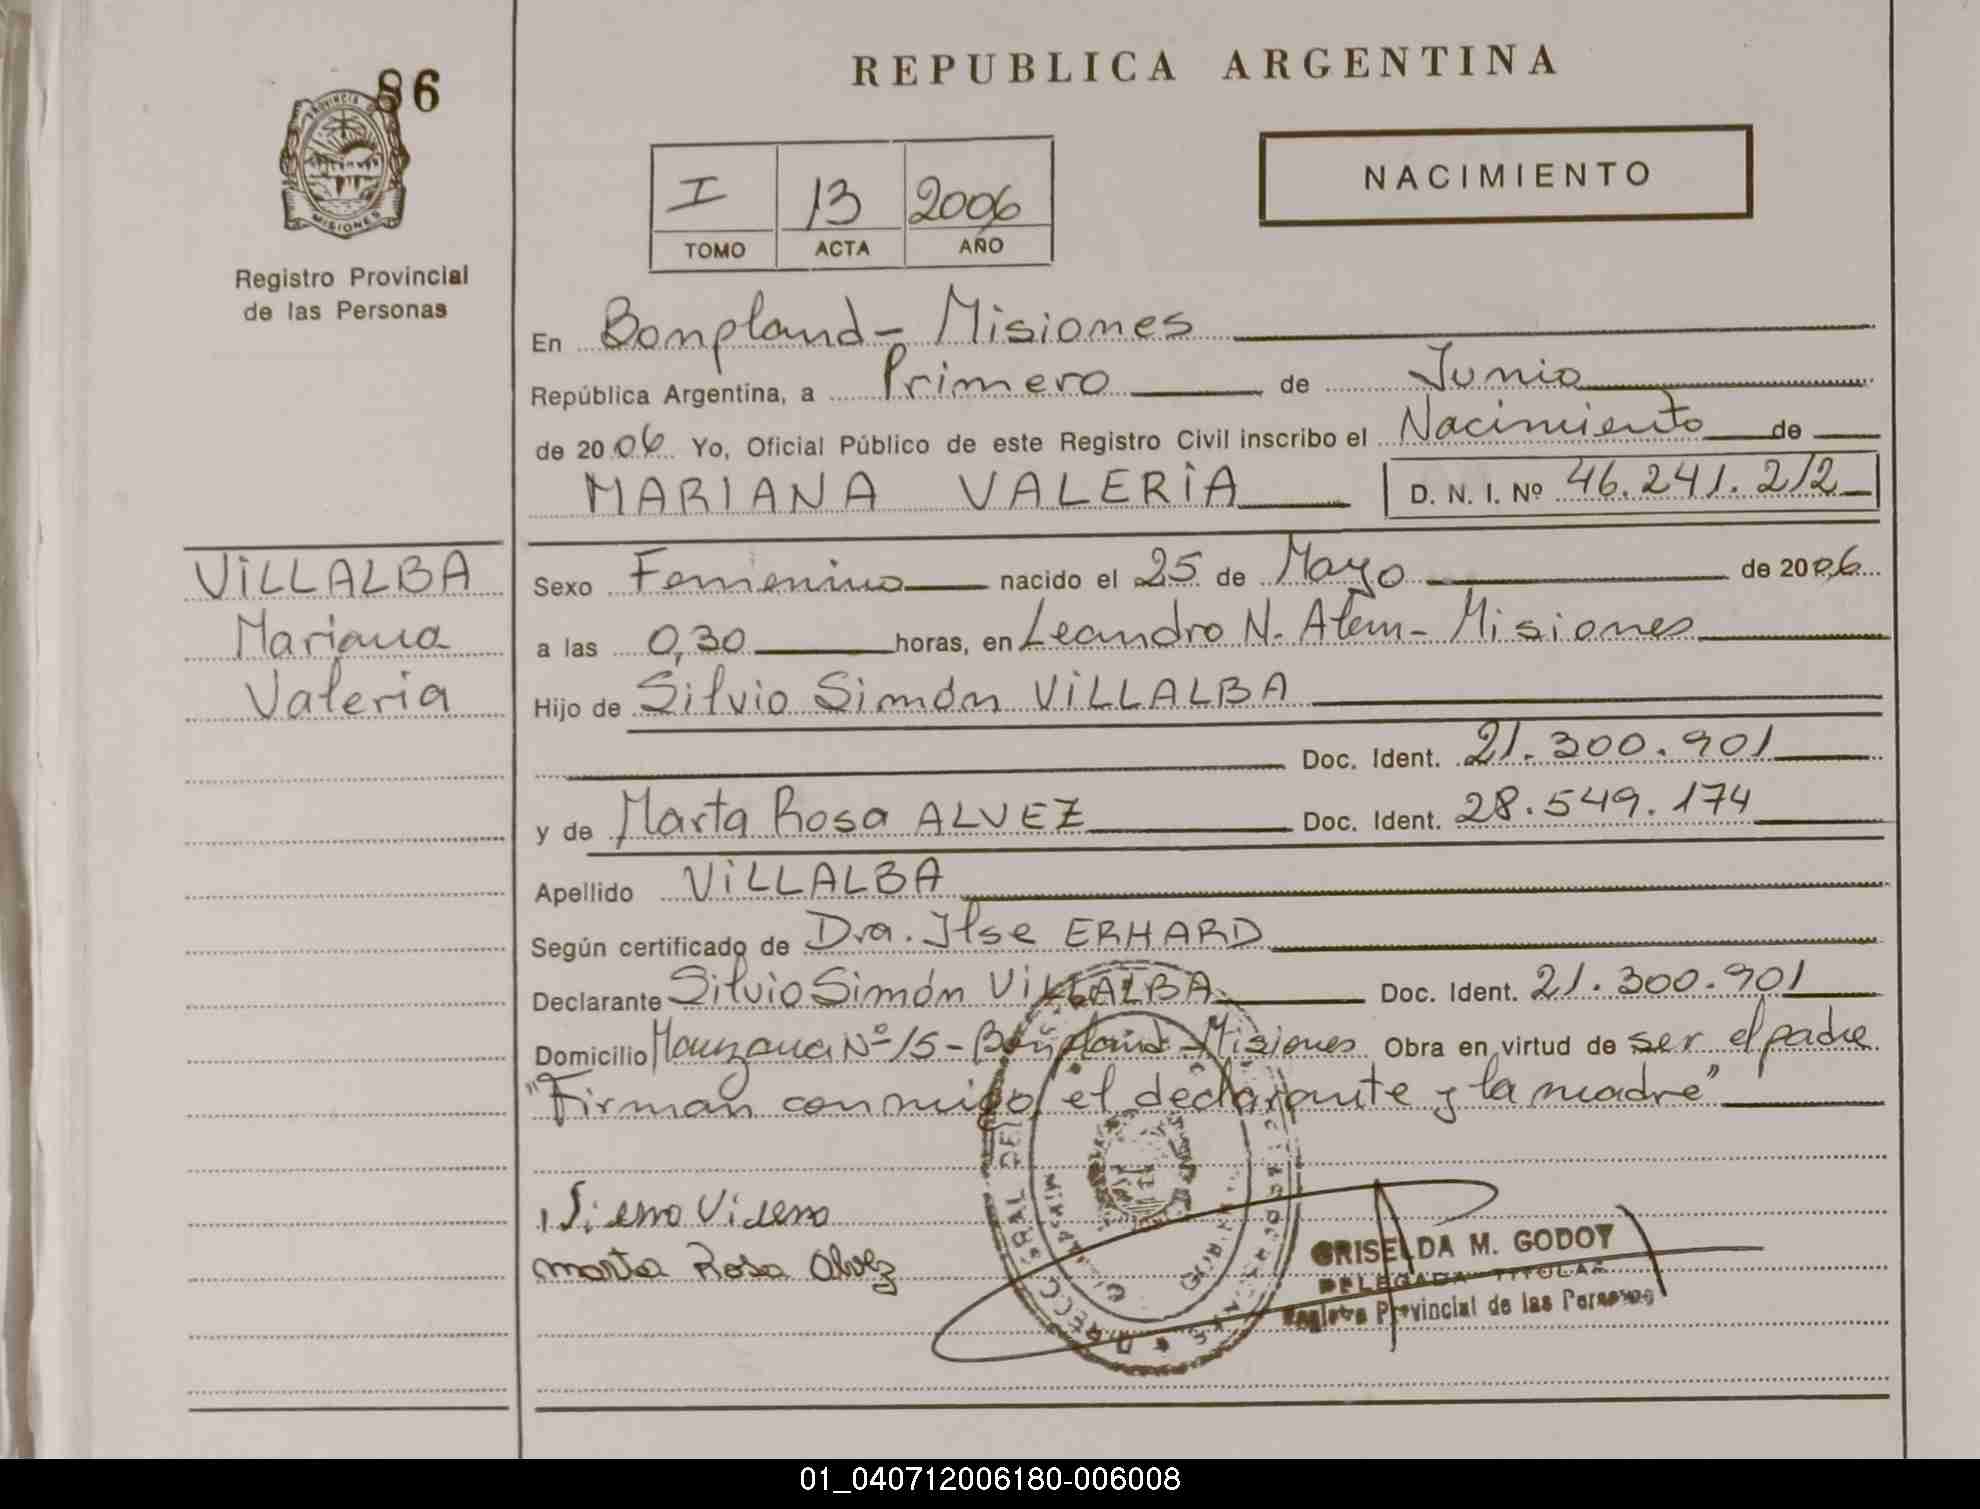 86
PROVINCIA DE
MISIONES
Registro Provincial
de las Personas
REPUBLICA ARGENTINA
I 13 2006
TOMO ACTA AÑO
NACIMIENTO
En Bonpland - Misiones
República Argentina, a Primero de Junio
de 2006 Yo, Oficial Público de este Registro Civil inscribo el Nacimiento de
MARIANA VALERIA D. N. I. Nº 46.241.212
VILLALBA
Mariana
Valeria
Sexo Femenino nacido el 25 de Mayo de 2006
a las 0,30 horas, en Leandro N. Alem - Misiones
Hijo de Silvio Simón VILLALBA
Doc. Ident. 21.300.901
y de Marta Rosa ALVEZ Doc. Ident. 28.549.174
Apellido VILLALBA
Según certificado de Dra. Ilse ERHARD
Declarante Silvio Simón VILLALBA Doc. Ident. 21.300.901
Domicilio Manzana Nº 15 - Bonpland - Misiones Obra en virtud de ser el padre
"Firman conmigo el declarante y la madre"
marta Rosa Alvez
GRISELDA M. GODOY
DELEGADA TITULAR
Registro Provincial de las Personas
01_040712006180-006008